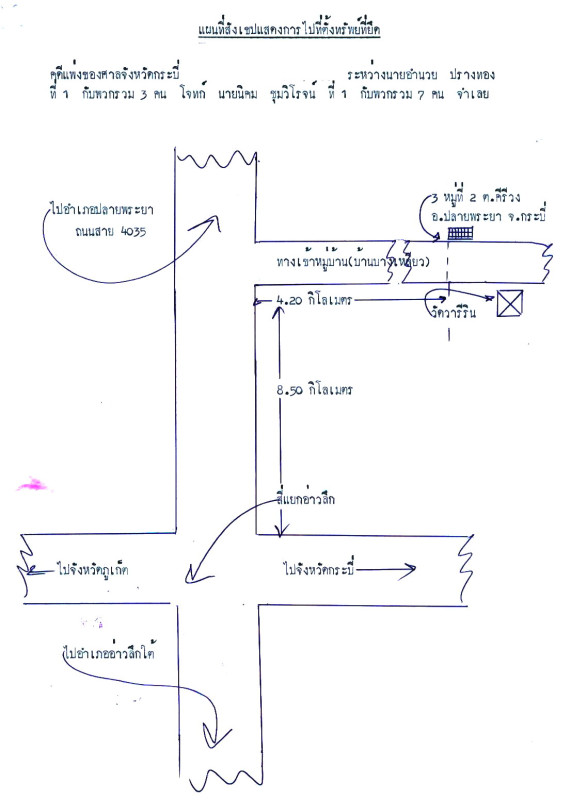 แผนที่สังเขปแสดงการไปที่ตั้งทรัพย์ที่ยึด
คดีแพ่งของศาลจังหวัดกระบี่ ระหว่างนายอำนวย ปรางทอง
ที่ 1 กับพวกรวม 3 คน โจทก์ นายนิคม ชุมวิโรจน์ ที่ 1 กับพวกรวม 7 คน จำเลย
ไปอำเภอปลายพระยา
ถนนสาย 4035
3 หมู่ที่ 2 ต.คีรีวง
อ.ปลายพระยา จ.กระบี่
ทางเข้าหมู่บ้าน(บ้านบางเหลียว)
4.20 กิโลเมตร
วัดวารีริน
8.50 กิโลเมตร
สี่แยกอ่าวลึก
ไปจังหวัดภูเก็ต
ไปจังหวัดกระบี่
ไปอำเภออ่าวลึกใต้